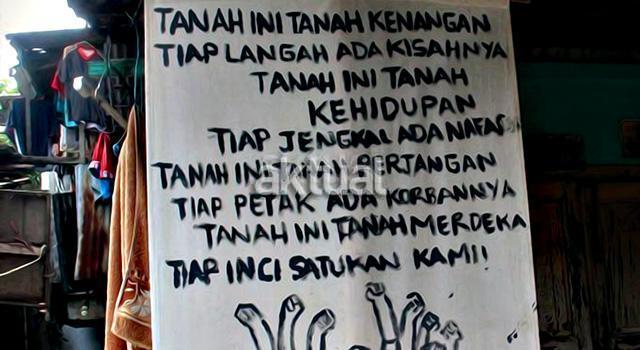 TANAH INI TANAH KENANGAN
TIAP LANGAH ADA KISAHNYA
TANAH INI TANAH
KEHIDUPAN
TIAP JENGKAL ADA NAFAS
TANAH INI TANAH BERJANGAN
aktual
TIAP PETAK ADA KORBANNYA
TANAH INI TANAH MERDEKA
TIAP INCI SATUKAN KAMI!